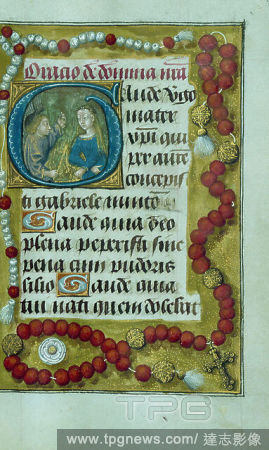 Oratio de domina nra
Gaude virgo
mater
xpi qui
per aure
concepis
ti gabriele nuncio
Gaude quia deo
plena peperisti sine
pena cum pudoris
lilio Gaude quia
tui nati quem dolebas
TPG
www.tpgnews.com/ 達志影像